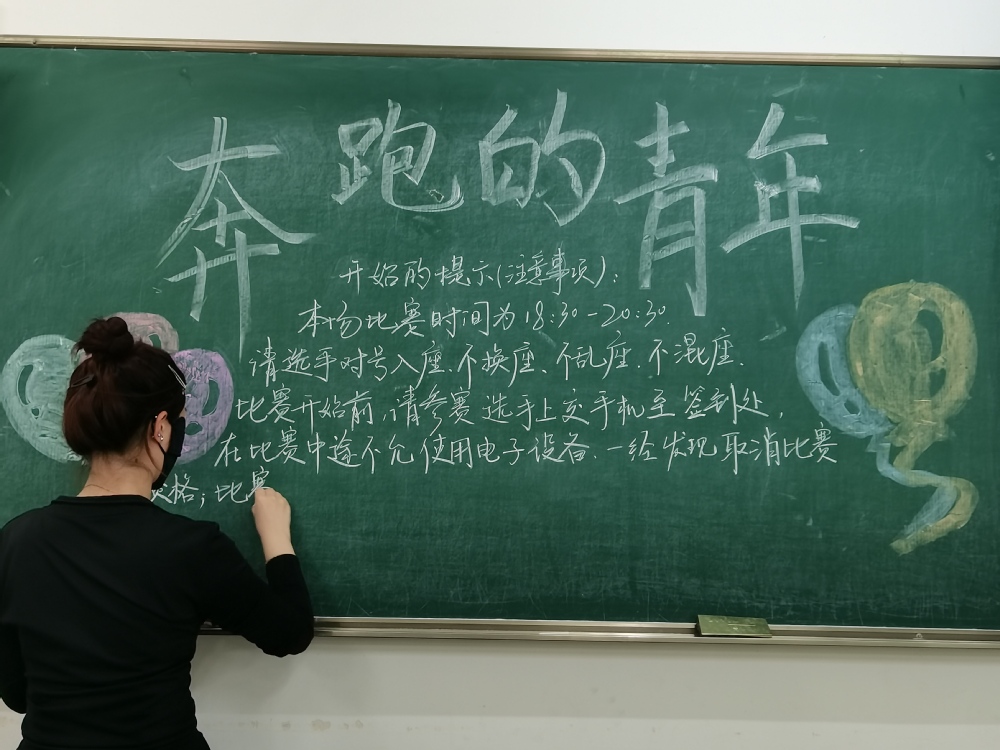 奔跑的青年
开始的提示(注意事项):
本场比赛时间为18:30-20:30.
请选手对号入座.不换座、不乱座.不混座.
比赛开始前,请参赛选手上交手机至签到处,
在比赛中途不允使用电子设备.一经发现取消比赛
资格;比赛